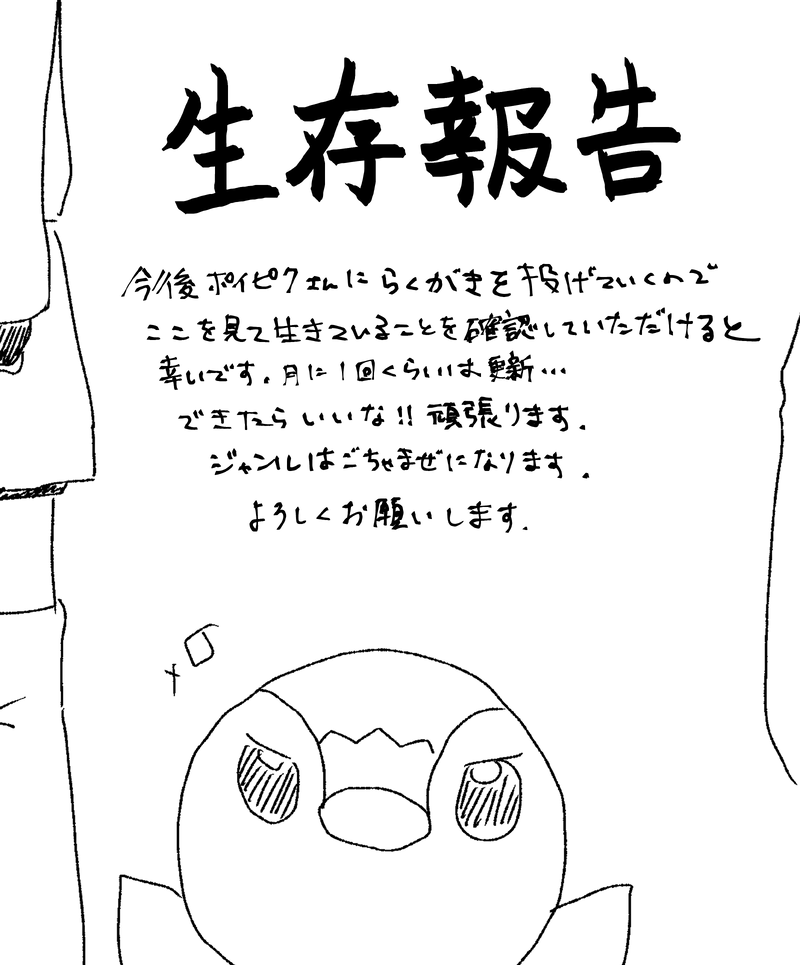 生存報告
今後ポイピクさんにらくがきを投げていくので
ここを見て生きていることを確認していただけると
幸いです。月に1回くらいは更新…
できたらいいな!!頑張ります.
ジャンルはごちゃまぜになります.
よろしくお願いします.